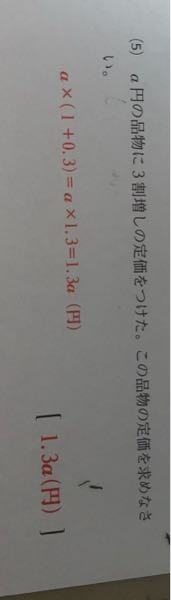 (5) a円の品物に3割増しの定価をつけた。この品物の定価を求めなさ
い。
a×(1+0.3)=a×1.3=1.3a (円)
[ 1.3a(円) ]